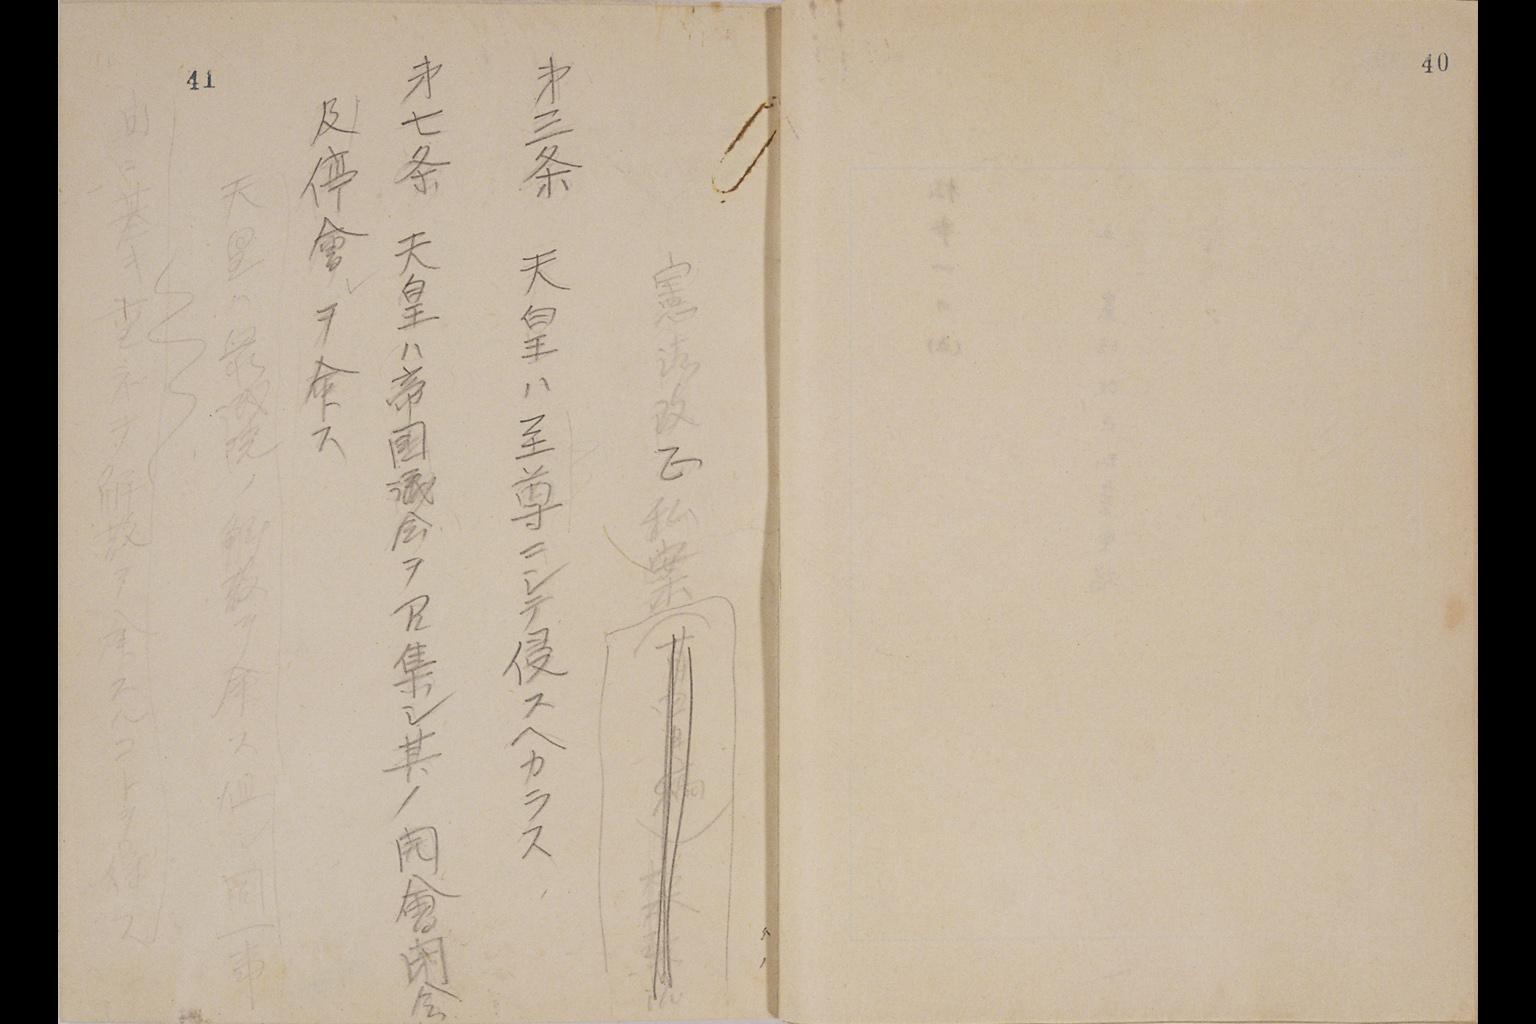 40
41
憲法改正私案
第三条 天皇ハ至尊ニシテ侵スヘカラス
第七条 天皇ハ帝国議会ヲ召集シ其ノ開會閉会
及停會ヲ命ス
天皇ハ衆議院ノ解散ヲ命ス但シ同一事
由ニ基キ重ネテ解散ヲ命スルコトヲ得ス